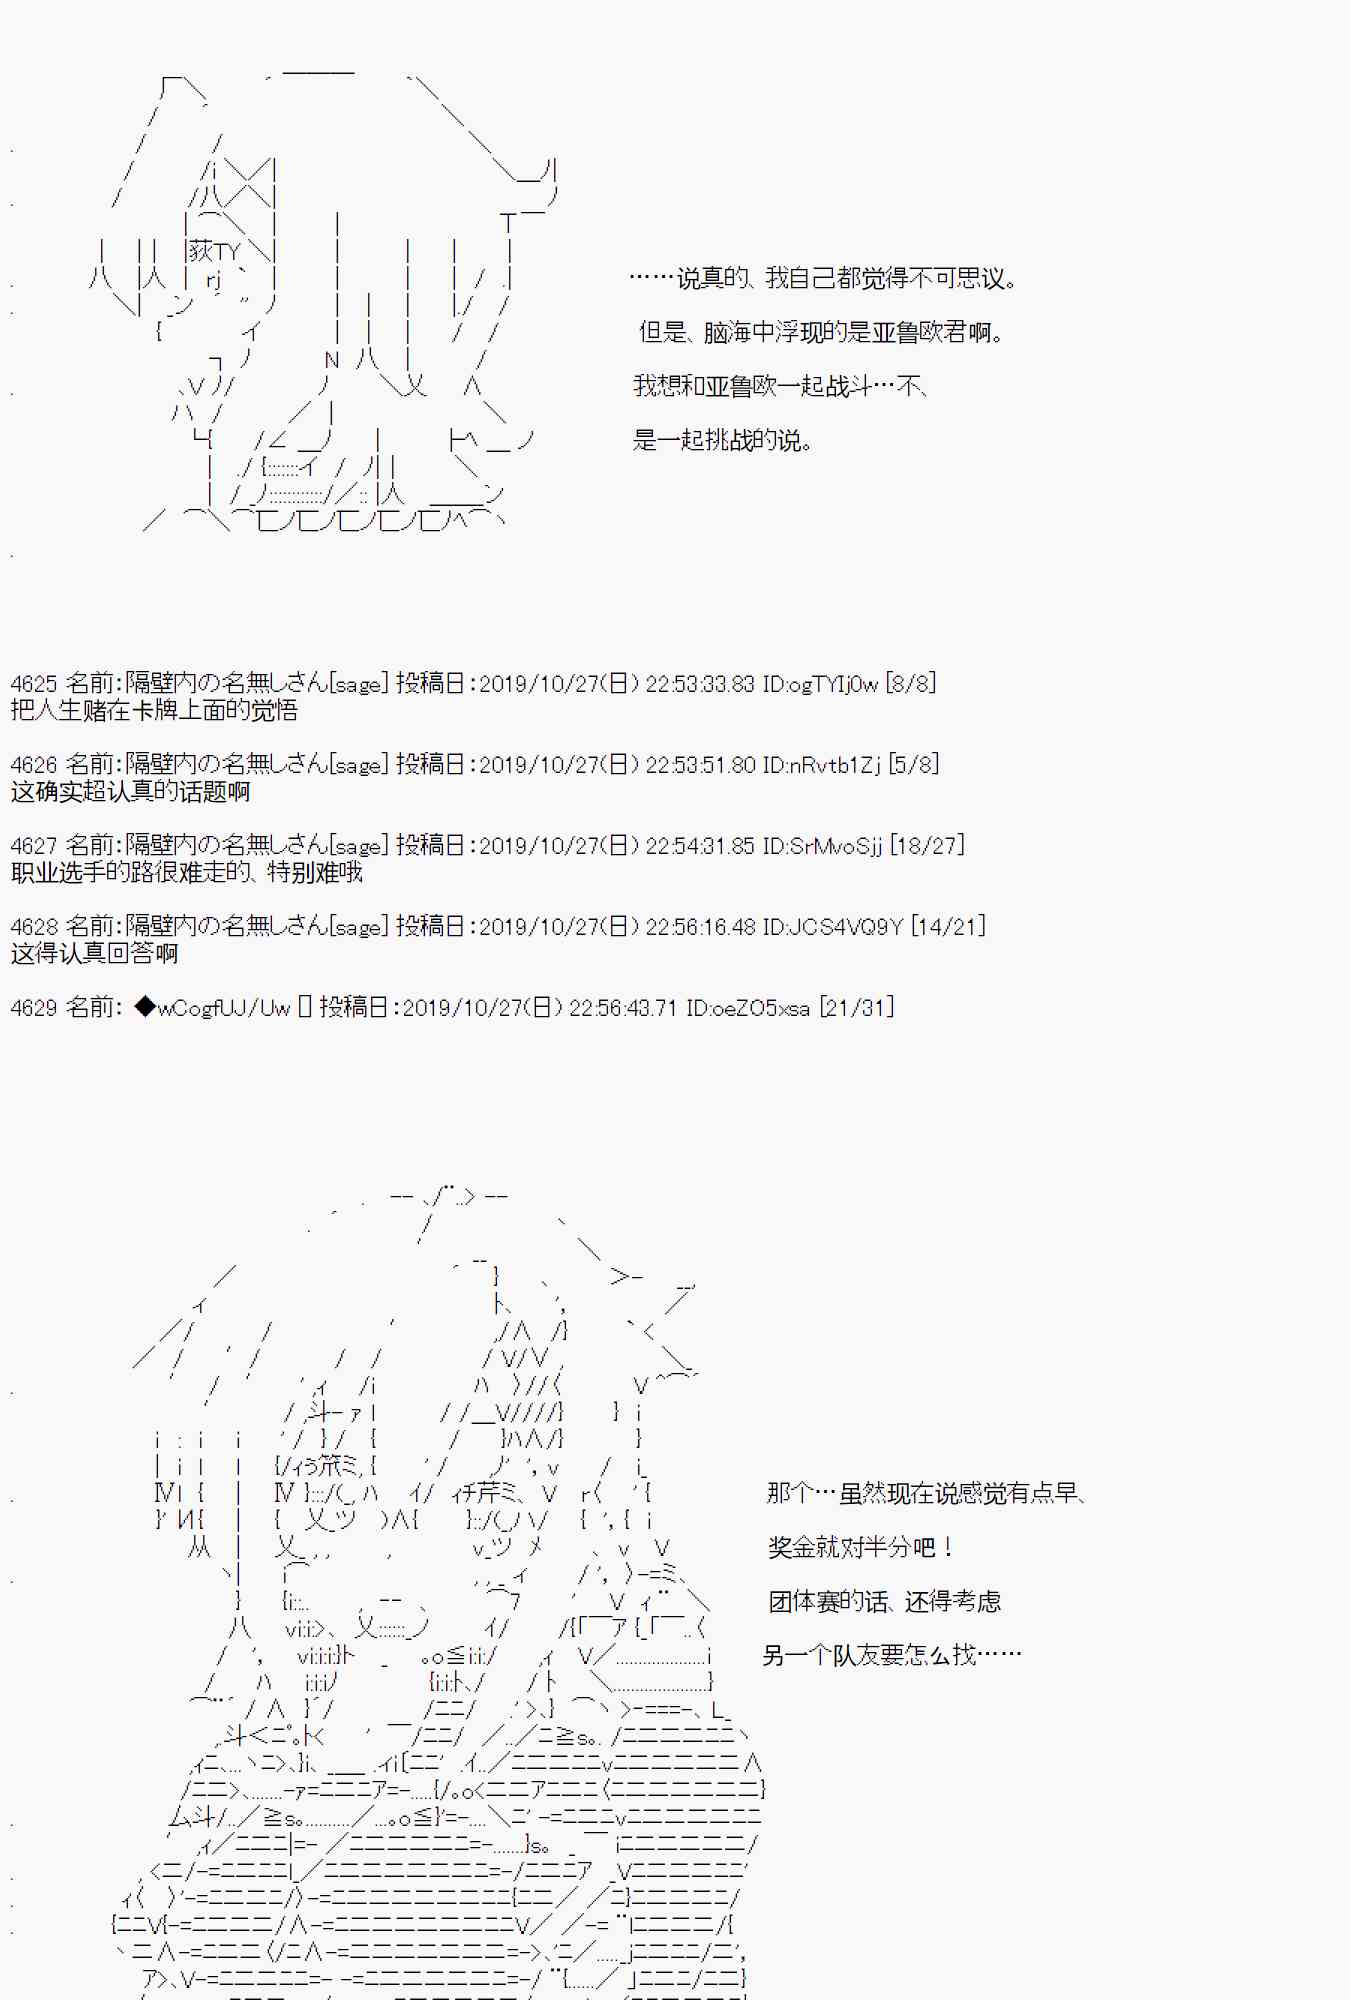 ……说真的、我自己都觉得不可思议。
但是、脑海中浮现的是亚鲁欧君啊。
我想和亚鲁欧一起战斗…不、
是一起挑战的说。
4625 名前：隔壁内の名無しさん[sage] 投稿日：2019/10/27(日) 22:53:33.83 ID:ogTYIj0w [8/8]
把人生赌在卡牌上面的觉悟
4626 名前：隔壁内の名無しさん[sage] 投稿日：2019/10/27(日) 22:53:51.80 ID:nRvtb1Zj [5/8]
这确实超认真的话题啊
4627 名前：隔壁内の名無しさん[sage] 投稿日：2019/10/27(日) 22:54:31.85 ID:SrMvoSjj [18/27]
职业选手的路很难走的、特别难哦
4628 名前：隔壁内の名無しさん[sage] 投稿日：2019/10/27(日) 22:56:16.48 ID:JCS4VQ9Y [14/21]
这得认真回答啊
4629 名前： ◆wCogfUJ/Uw [] 投稿日：2019/10/27(日) 22:56:43.71 ID:oeZO5xsa [21/31]
那个…虽然现在说感觉有点早、
奖金就对半分吧！
团体赛的话、还得考虑
另一个队友要怎么找……